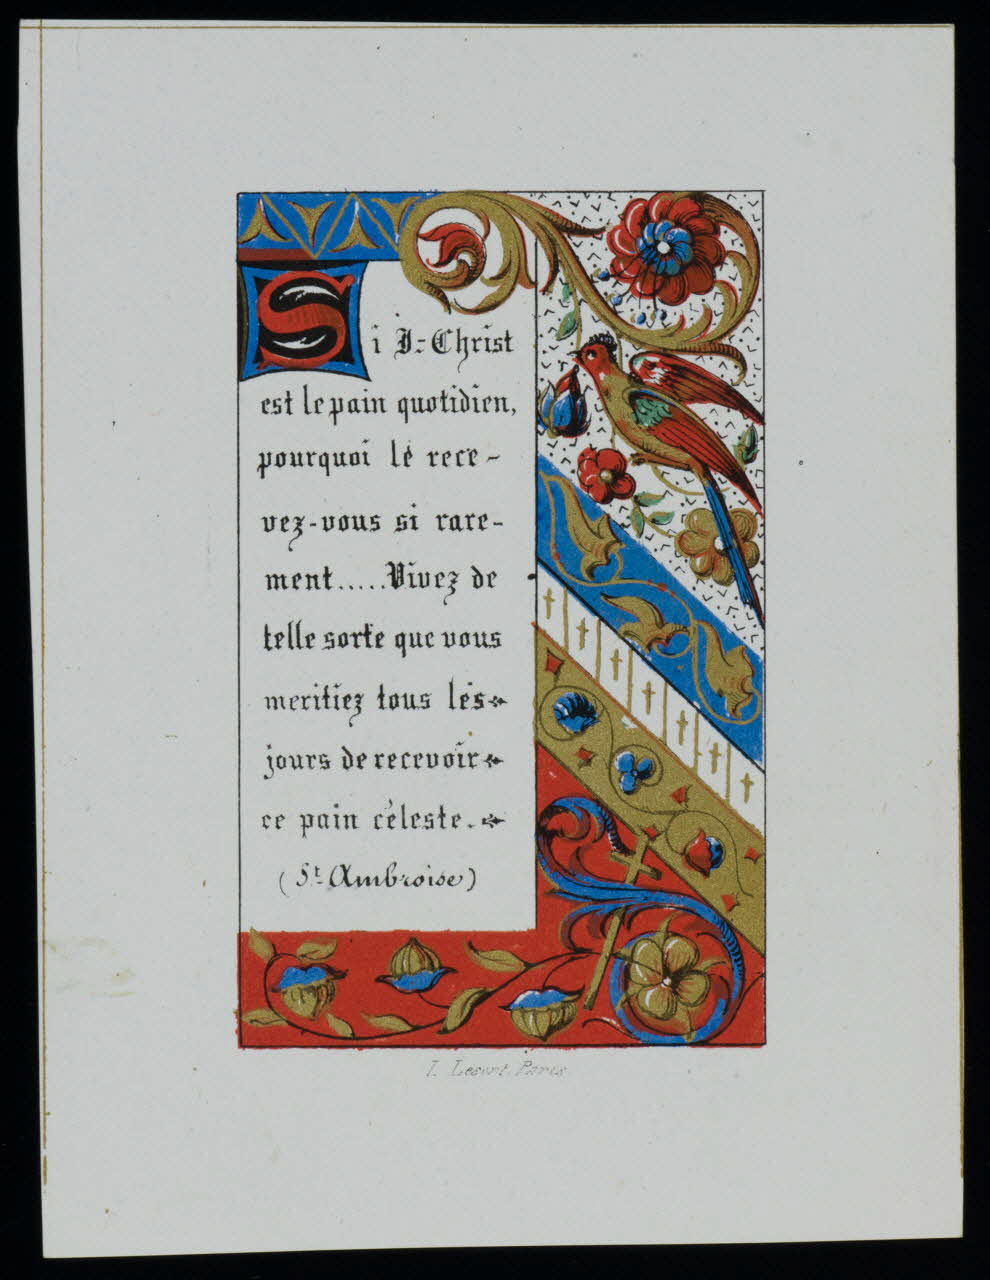 Si J-Christ
est le pain quotidien,
pourquoi le rece-
vez-vous si rare-
ment.....Vivez de
telle sorte que vous
meritiez tous les
jours de recevoir
ce pain céleste.
(St Ambroise)
Paris